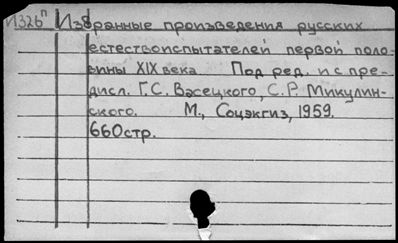 И326п Избранные произведения русских
естествоиспытателей первой поло-
вины XIX века Под ред. и с пре-
дисл. Г.С. Васецкого, С.Р. Микулин-
ского. М., Соцэкгиз, 1959.
660стр.